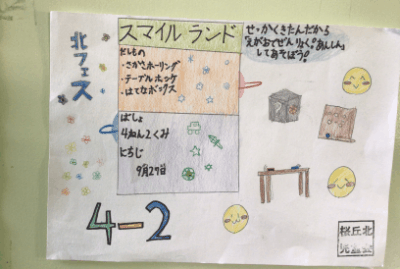 北フェス
スマイルランド
だしもの
・さかさボーリング
・テーブルホッケ
・はてなボックス
ばしょ
4ねん2くみ
にちじ
9月27日
せっかくきたんだから
えがおでぜんりょく!あんしん!
してあそぼう!
4-2